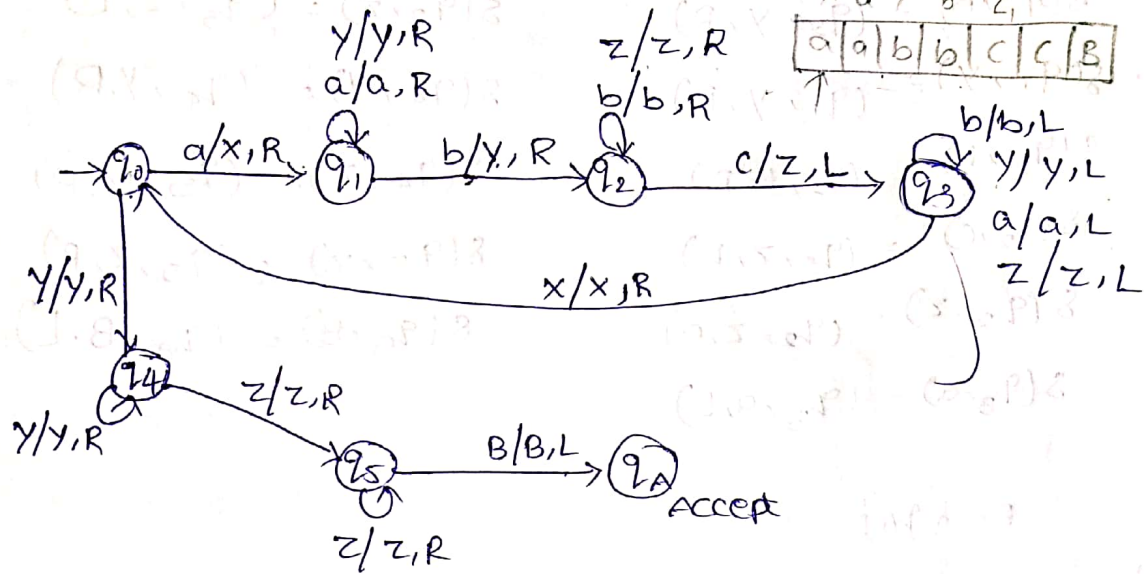 y/y,R
a/a,R
z/z,R
b/b,R
a a b b C C B
q0
a/x,R
q1
b/y,R
q2
C/z,L
q3
b/b,L
y/y,L
a/a,L
z/z,L
x/x,R
y/y,R
q4
y/y,R
z/z,R
q5
z/z,R
B/B,L
qA
Accept